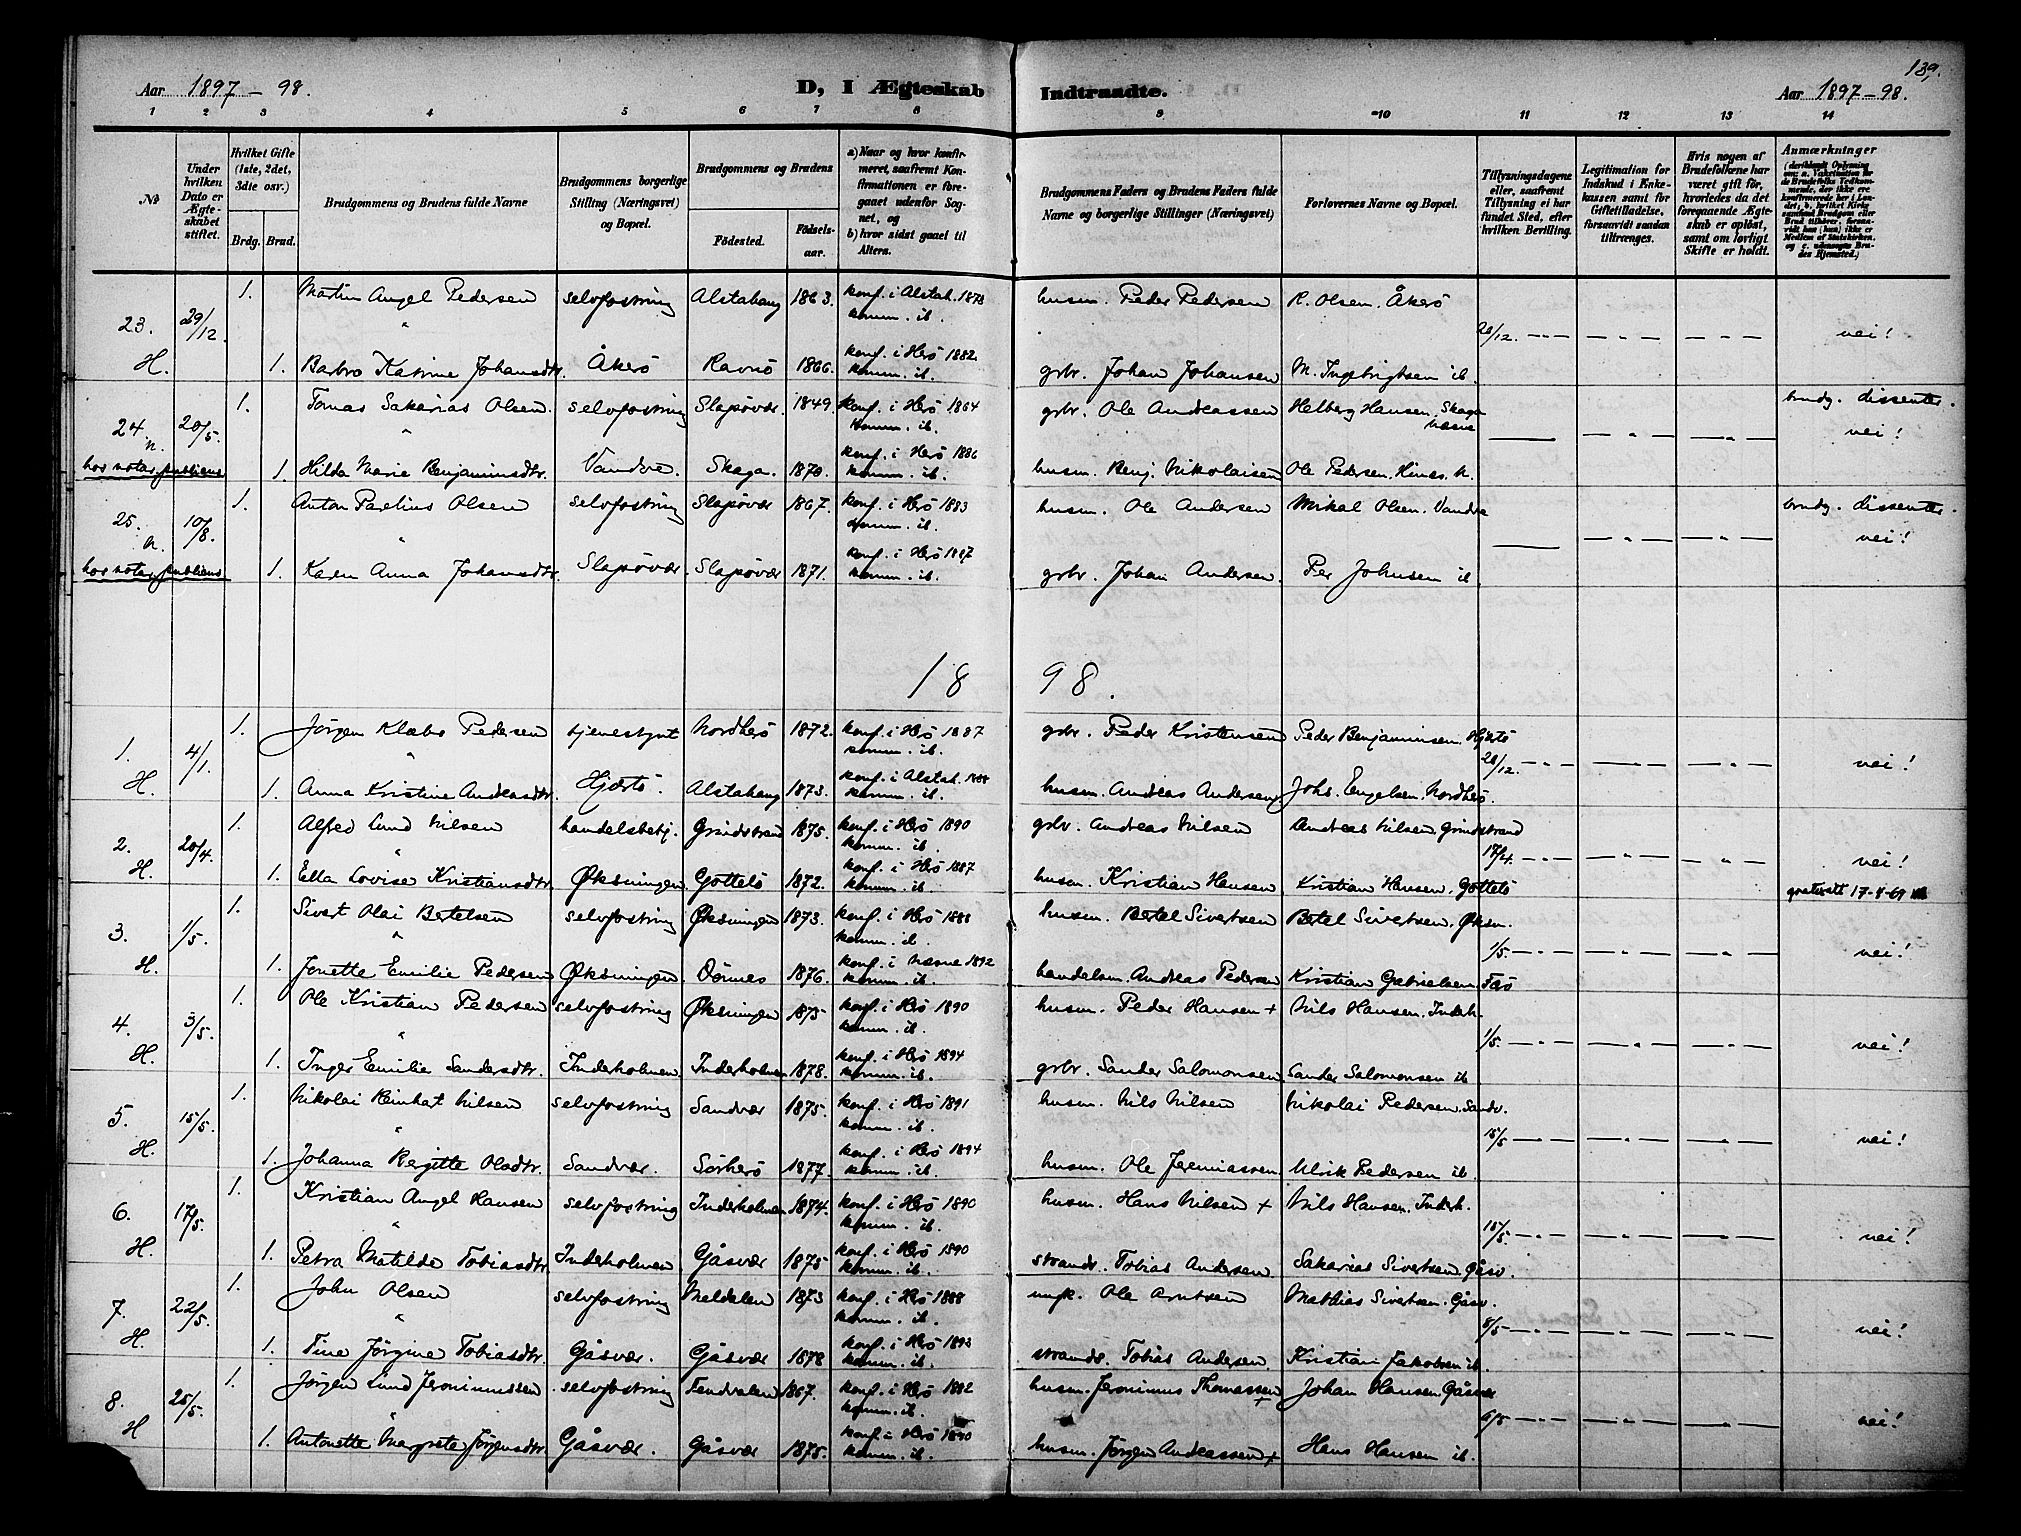 139.
Aar 1897 - 98. D, I Ægteskab Indtraadte. Aar 1897 - 98.
1 2 3 4 5 6 7 8 9 10 11 12 13 14
№
Under hvilken Dato er Ægteskabet stiftet.
Hvilket Gifte (1ste, 2det, 3die osv.)
Brdg. Brud.
Brudgommens og Brudens fulde Navne
Brudgommens borgerlige Stilling (Næringsvei) og Bopæl.
Brudgommens og Brudens
Fødested. Fødselsaar.
a) Naar og hvor konfirmeret, saafremt Konfirmationen er foregaaet udenfor Sognet, og
b) hvor sidst gaaet til Alters.
Brudgommens Faders og Brudens Faders fulde Navne og borgerlige Stillinger (Næringsvei)
Forlovernes Navne og Bopæl.
Tillysningsdagene eller, saafremt Tillysning ei har fundet Sted, efter hvilken Bevilling.
Legitimation for Indskud i Ænkekassen samt for Giftetilladelse, forsaavidt saadan tiltrænges.
Hvis nogen af Brudefolkene har været gift før, hvorledes da det foregaaende Ægteskab er opløst, samt om lovligt Skifte er holdt.
Anmærkninger
1. Martin Angel Pedersen selvfostring Alstahaug 1863. konf. i Alstah. 1878 husm. Peder Pedersen R. Olsen. Åkerö
23. 29/12 " komm. ib. 26/12. — " — — " — — " — nei!
H. 1. Barbro Katrine Johansdtr. Åkerö Ravnö 1866. konf. i Herö 1882 komm. ib. grbr. Johan Johansen M. Ingebrigtsen ib.
1. Tomas Sakarias Olsen. selvfostring Slapövær 1849. konf. i Herö 1864 grbr. Ole Andreassen Helberg Hansen. Skaga brudg. dissenter.
24. n. 20/5. " komm. ib. Næsne — — " — — " — nei!
hos notar. publicus 1. Hilda Marie Benjaminsdtr. Vandve. Skaga. 1870. konf. i Herö 1886 komm. ib. husm. Benj. Nikolaisen Ole Pedersen.
1. Anton Parelius Olsen selvfostring Slapövær 1867. konf. i Herö 1883 husm. Ole Andersen Mikal Olsen. Vandve brudg. dissenter.
25. n. 10/8. " komm. ib. — — " — — " — nei!
hos notar. publicus 1. Karen Anna Johansdtr. Slapövær. Slapövær 1871. konf. i Herö 1887 komm. ib. grbr. Johan Andersen. Per Johnsen ib
18 98.
1. Jörgen Klæbo Pedersen tjenestgut Nordherö 1872. konf. i Herö 1887 grbr. Peder Kristensen Peder Benjaminsen. Hjærtö
1. 4/1. " komm. ib. 26/12. — " — — " — — " — nei!
H. 1. Anna Kristine Andreasdtr. Hjærtö. Alstahaug 1873. konf. i Alstah. 1888 komm. ib. husm. Andreas Andersen Johs. Engelsen. Nordherö.
1. Alfred Lund Nilsen handelsbetj. Grindstrand 1875. konf. i Herö 1890 grbr. Andreas Nilsen Andreas Nilsen. Grindstrand
2. 20/4. " komm. ib. 17/4. — " — — " — — " — nei!
H. 1. Ella Lovise Kristiansdtr. Øksningen. Gottelö 1872. konf. i Herö 1887 komm. ib. husm. Kristian Hansen Kristian Hansen. Gottelö
1. Sivert Olai Bertelsen selvfostring Øksningen 1873. konf. i Herö 1888 husm. Bertel Sivertsen Bertel Sivertsen. Øksn.
3. 1/5. " komm. ib. 1/5. — " — — " — — " — nei!
H. 1. Jonette Emilie Pedersen Øksningen Dönnes 1876. konf. i Næsne 1892 komm. ib. handelsm. Andreas Pedersen Kristian Gabrielsen Færö
1. Ole Kristian Pedersen selvfostring Øksningen 1875 konf. i Herö 1890 husm. Peder Hansen + Nils Hansen. Inderh.
4. 3/5. " komm. ib. 1/5. — " — — " — — " — nei!
H. 1. Inger Emilie Sandersdtr. Inderholmen Inderholmen 1878. konf. i Herö 1894 komm. ib. grbr. Sander Salomonsen Sander Salomonsen ib
1. Nikolai Reinhart Nilsen selvfostring Sandvær 1875. konf. i Herö 1891 husm. Nils Nilsen Nikolai Pedersen. Sandv.
5. 15/5. " komm. ib. 15/5 — " — — " — — " — nei!
H. 1. Johanna Regitte Olsdtr. Sandvær. Sörherö 1877. konf. i Herö 1894 komm. ib. husm. Ole Jeremiassen Ulrik Pedersen ib.
1. Kristian Angel Hansen selvfostring Inderholmen 1874. konf. i Herö 1890 husm. Hans Nilsen + Nils Hansen. Inderh.
6. 17/5. " komm. ib. 15/5. — " — — " — — " — nei!
H. 1. Petra Matilde Tobiasdtr. Inderholmen Gåsvær 1875 konf. i Herö 1890 komm. ib. strands. Tobias Andersen Sakarias Sivertsen. Gåsv.
1. John Olsen selvfostring Meldalen 1873 konf. i Herö 1888 ungk. Ole Arntsen Mathias Sivertsen. Gåsv.
7. 22/5. " komm. ib. 8/5 — " — — " — — " — nei!
H. 1. Tine Jörgine Tobiasdtr. Gåsvær. Gåsvær 1878 konf. i Herö 1893 komm. ib. strands. Tobias Andersen Kristian Jakobsen ib.
1. Jörgen Lund Jeronimussen selvfostring Tendvalen 1867. konf. i Herö 1882 husm. Jeronimus Thomassen + Johan Hansen Gåsvær
8. 25/5. " komm. ib. 6/5 — " — — " — — " — nei!
H 1. Antonette Margrete Jörgensdtr. Gåsvær. Gåsvær 1875. konf. i Herö 1890 komm. ib. husm. Jörgen Andreassen + Hans Hansen ib.